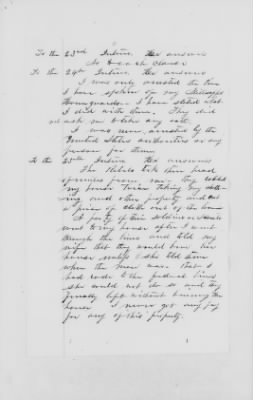 To the 23rd Inter. Her answer
No to each clause
To the 24th Inter. Her answer
I was only arrested the time
I have spoken of by
Homeguards. I have stated what
I did with them. They did
not ask me to take any oath.
I was never arrested by the
United States authorities or any
person for them
To the 25th Inter. Her answer
The Rebels took three head
from me. They robbed
my house twice taking my
and other property and cut
a piece of cloth out of the loom
A party of the soldiers
went to my house after I went
through the lines and told my
wife that they would burn her
house unless she told them
where the men were that
had gone to the federal lines
she would not do so and they
finally left without burning the
house I never got any pay
for any of this property.